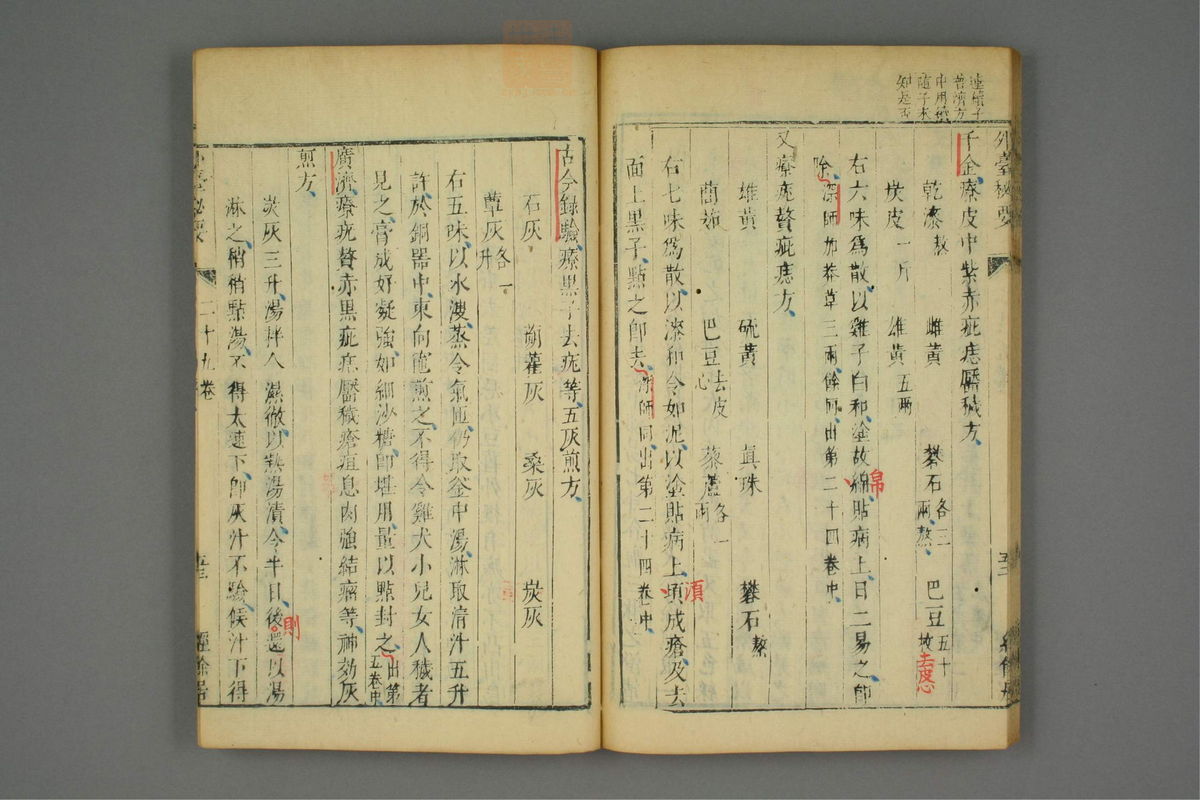 連續子
普濟方
中用續
隨子未
知是否
外臺秘要
千金療皮中紫赤疵痣靨穢方
乾漆熬 雌黃 礬石各三兩熬 巴豆五十枚去皮心
炭皮一斤 雄黃五兩
右六味爲散以雞子白和塗故綿貼病上日二易之卽
帛
除深師加莽草三兩餘同出第二十四卷中
又療疣贅疵痣方
雄黃 硫黃 真珠 礬石熬
䕡茹 巴豆去皮心 藜蘆各一兩
右七味爲散以漆和令如泥以塗貼病上須成瘡及去
須
面上黑子點之卽去深師同出第二十四卷中
古今錄驗療黑子去疣等五灰煎方
石灰 蒴藋灰 桑灰 炭灰
蕈灰各一升
右五味以水溲蒸令氣匝仍取釜中湯淋取清汁五升
許於銅器中東向竈煎之不得令雞犬小兒女人穢者
見之膏成好凝強如細沙糖卽堪用量以點封之出第五卷中
廣濟療疣贅赤黑疵痣靨穢瘡疽息肉強結瘤等神効灰
煎方
炭灰三升湯拌令濕徹以熱湯漬令半日後還以湯
則
淋之稍稍點湯不得太速下卽灰汁不驗候汁下得
外臺秘要 二十九卷 五三 經餘居